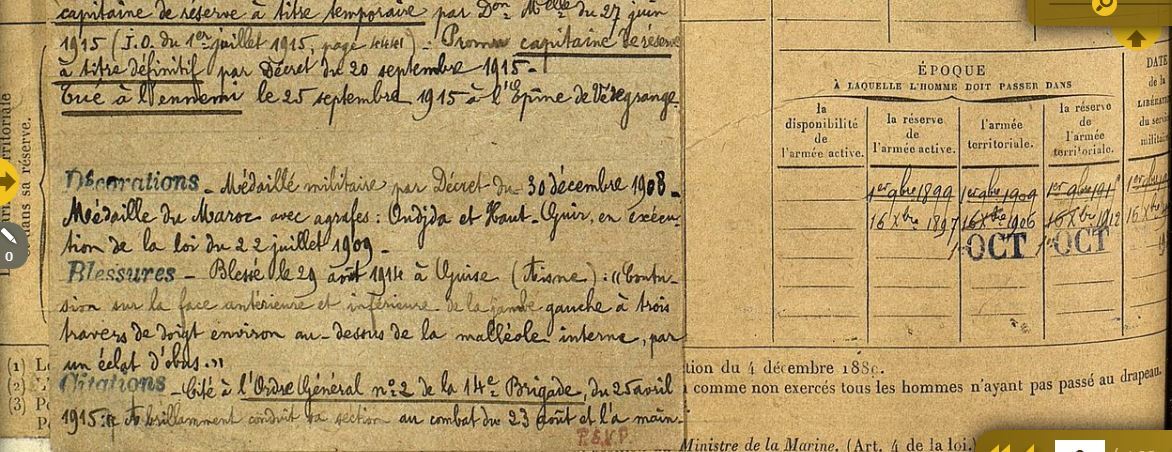 capitaine de réserve à titre temporaire par Don Melle du 27 juin
1915 (J.O. du 1er juillet 1915, page 4441). Promu capitaine de réserve
à titre définitif par Décret du 20 septembre 1915.-
Tué à l'ennemi le 25 septembre 1915 à l'Epine de Védegrange.
Décorations - Médaillé militaire par Décret du 30 décembre 1908.-
Médaille du Maroc avec agrafes: Oudjda et Haut-Guir, en exécu-
tion de la loi du 22 juillet 1909.-
Blessures - Blessé le 29 août 1914 à Guise (Aisne): "Contu-
sion sur la face antérieure et inférieure de la jambe gauche à trois
travers de doigt environ au-dessus de la malléole interne, par
un éclat d'obus."
Citations - Cité à l'Ordre Général n°2 de la 14e Brigade, du 25 avril
1915: "A brillamment conduit sa section au combat du 23 août et l'a main-
P.S.V.P.
territoriale
dans sa réserve.
0
(1) Le
(2)
(3) Po
P
ÉPOQUE
À LAQUELLE L'HOMME DOIT PASSER DANS
la disponibilité de l'armée active.
la réserve de l'armée active.
l'armée territoriale.
la réserve de l'armée territoriale.
DATE
de la
LIBÉRA
du servi
milita
1er 9bre 1899 1er 9bre 1909 1er 9bre 191
16 Xbre 1897 16 Xbre 1906 16 Xbre 1912 16 X
OCT OCT
tion du 4 décembre 1889.
comme non exercés tous les hommes n'ayant pas passé au drapeau.
Ministre de la Marine. (Art. 4 de la loi.)